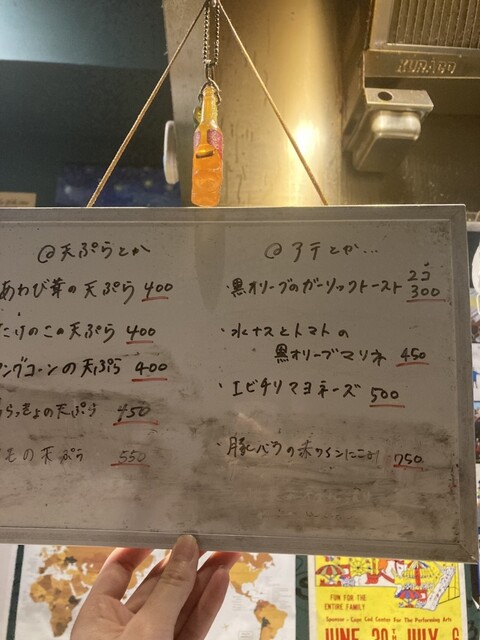 KURABO
@天ぷらとか
あわび茸の天ぷら 400
たけのこの天ぷら 400
ングコーンの天ぷら 400
らっきょの天ぷら 450
もの天ぷら 550
@アテとか...
・黒オリーブのガーリックトースト 2コ 300
・水ナスとトマトの
黒オリーブマリネ 450
・エビチリマヨネーズ 500
・豚バラの赤ワインにこみ 750
FUN FOR THE
ENTIRE FAMILY
Sponsor - Cape Cod Center For The Performing Arts
JUNE JULY